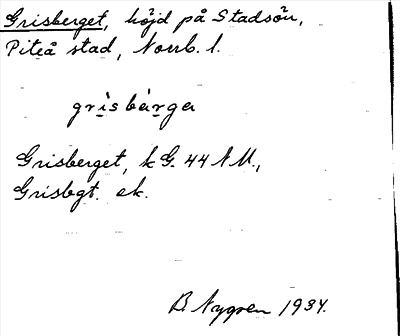 Grisberget, höjd på Stadsön,
Piteå stad, Norrb. l.
grìsbàrga
Grisberget, k G. 44 NM.,
Grisbgt. ek.
B Nygren 1934.